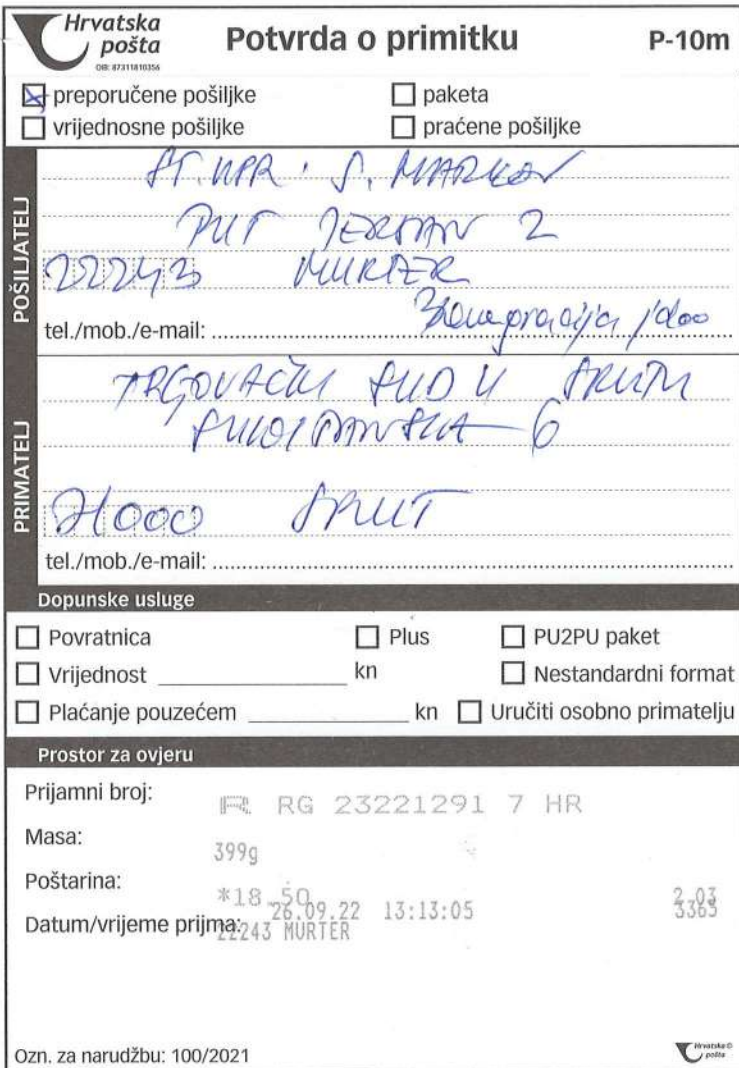 Hrvatska pošta
OIB: 87311810356
Potvrda o primitku
P-10m
preporučene pošiljke
paketa
vrijednosne pošiljke
praćene pošiljke
POŠILJATELJ
ST. UPR. S. MARKOV
PUT JERSAN 2
22243 MURTER
tel./mob./e-mail:
jdoo
PRIMATELJ
TRGOVAČKI SUD U SPLITU
SUKOIŠANSKA 6
21000 SPLIT
tel./mob./e-mail:
Dopunske usluge
Povratnica
Plus
PU2PU paket
Vrijednost kn
Nestandardni format
Plaćanje pouzećem kn
Uručiti osobno primatelju
Prostor za ovjeru
Prijamni broj: R RG 23221291 7 HR
Masa: 399g
Poštarina: *18.50 2.03
Datum/vrijeme prijma: 26.09.22 13:13:05 3365
22243 MURTER
Ozn. za narudžbu: 100/2021
Hrvatska pošta